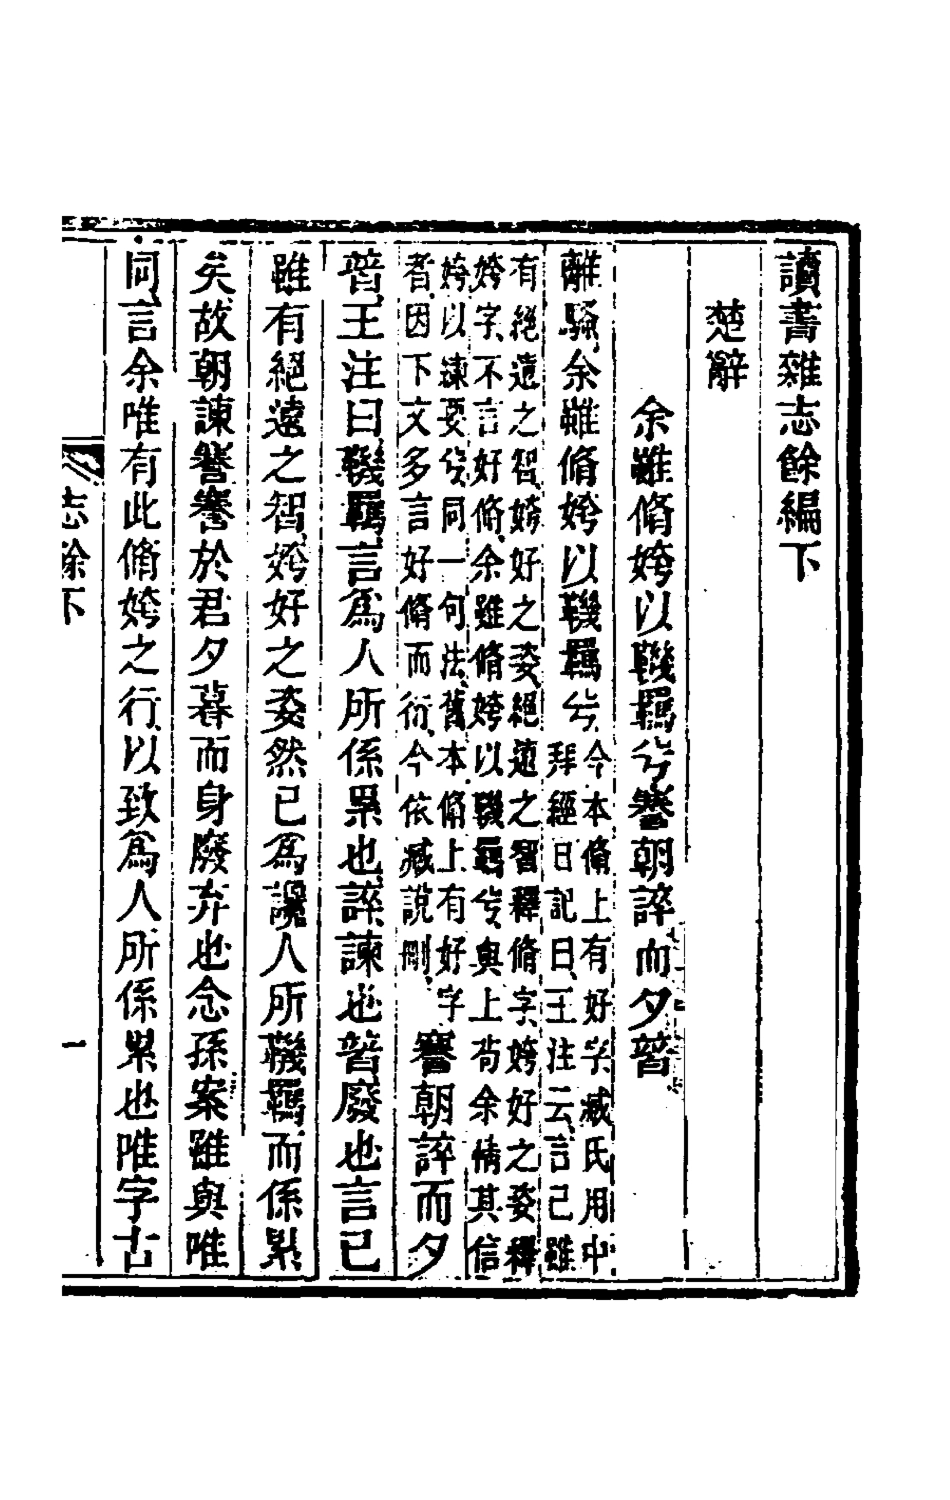 讀書雜志餘編下
楚辭
余雖脩姱以鞿羈兮謇朝誶而夕替
離騷余雖脩姱以鞿羈兮
今本脩上有好字臧氏用中
拜經日記曰王注云言己雖
有絕遠之智姱好之姿絕遠之智釋脩字姱好之姿釋
姱字不言好脩余雖脩姱以鞿羈兮與上句余情其信
姱以練要兮同一句法舊本脩上有好字
者因下文多言好脩而衍今依臧說刪
謇朝誶而夕
替王注曰鞿羈言爲人所係累也誶諫也替廢也言己
雖有絕遠之智姱好之姿然已爲讒人所鞿羈而係累
矣故朝諫謇謇於君夕暮而身廢弃也念孫案雖與唯
同言余唯有此脩姱之行以致爲人所係累也唯字古
志餘下
一